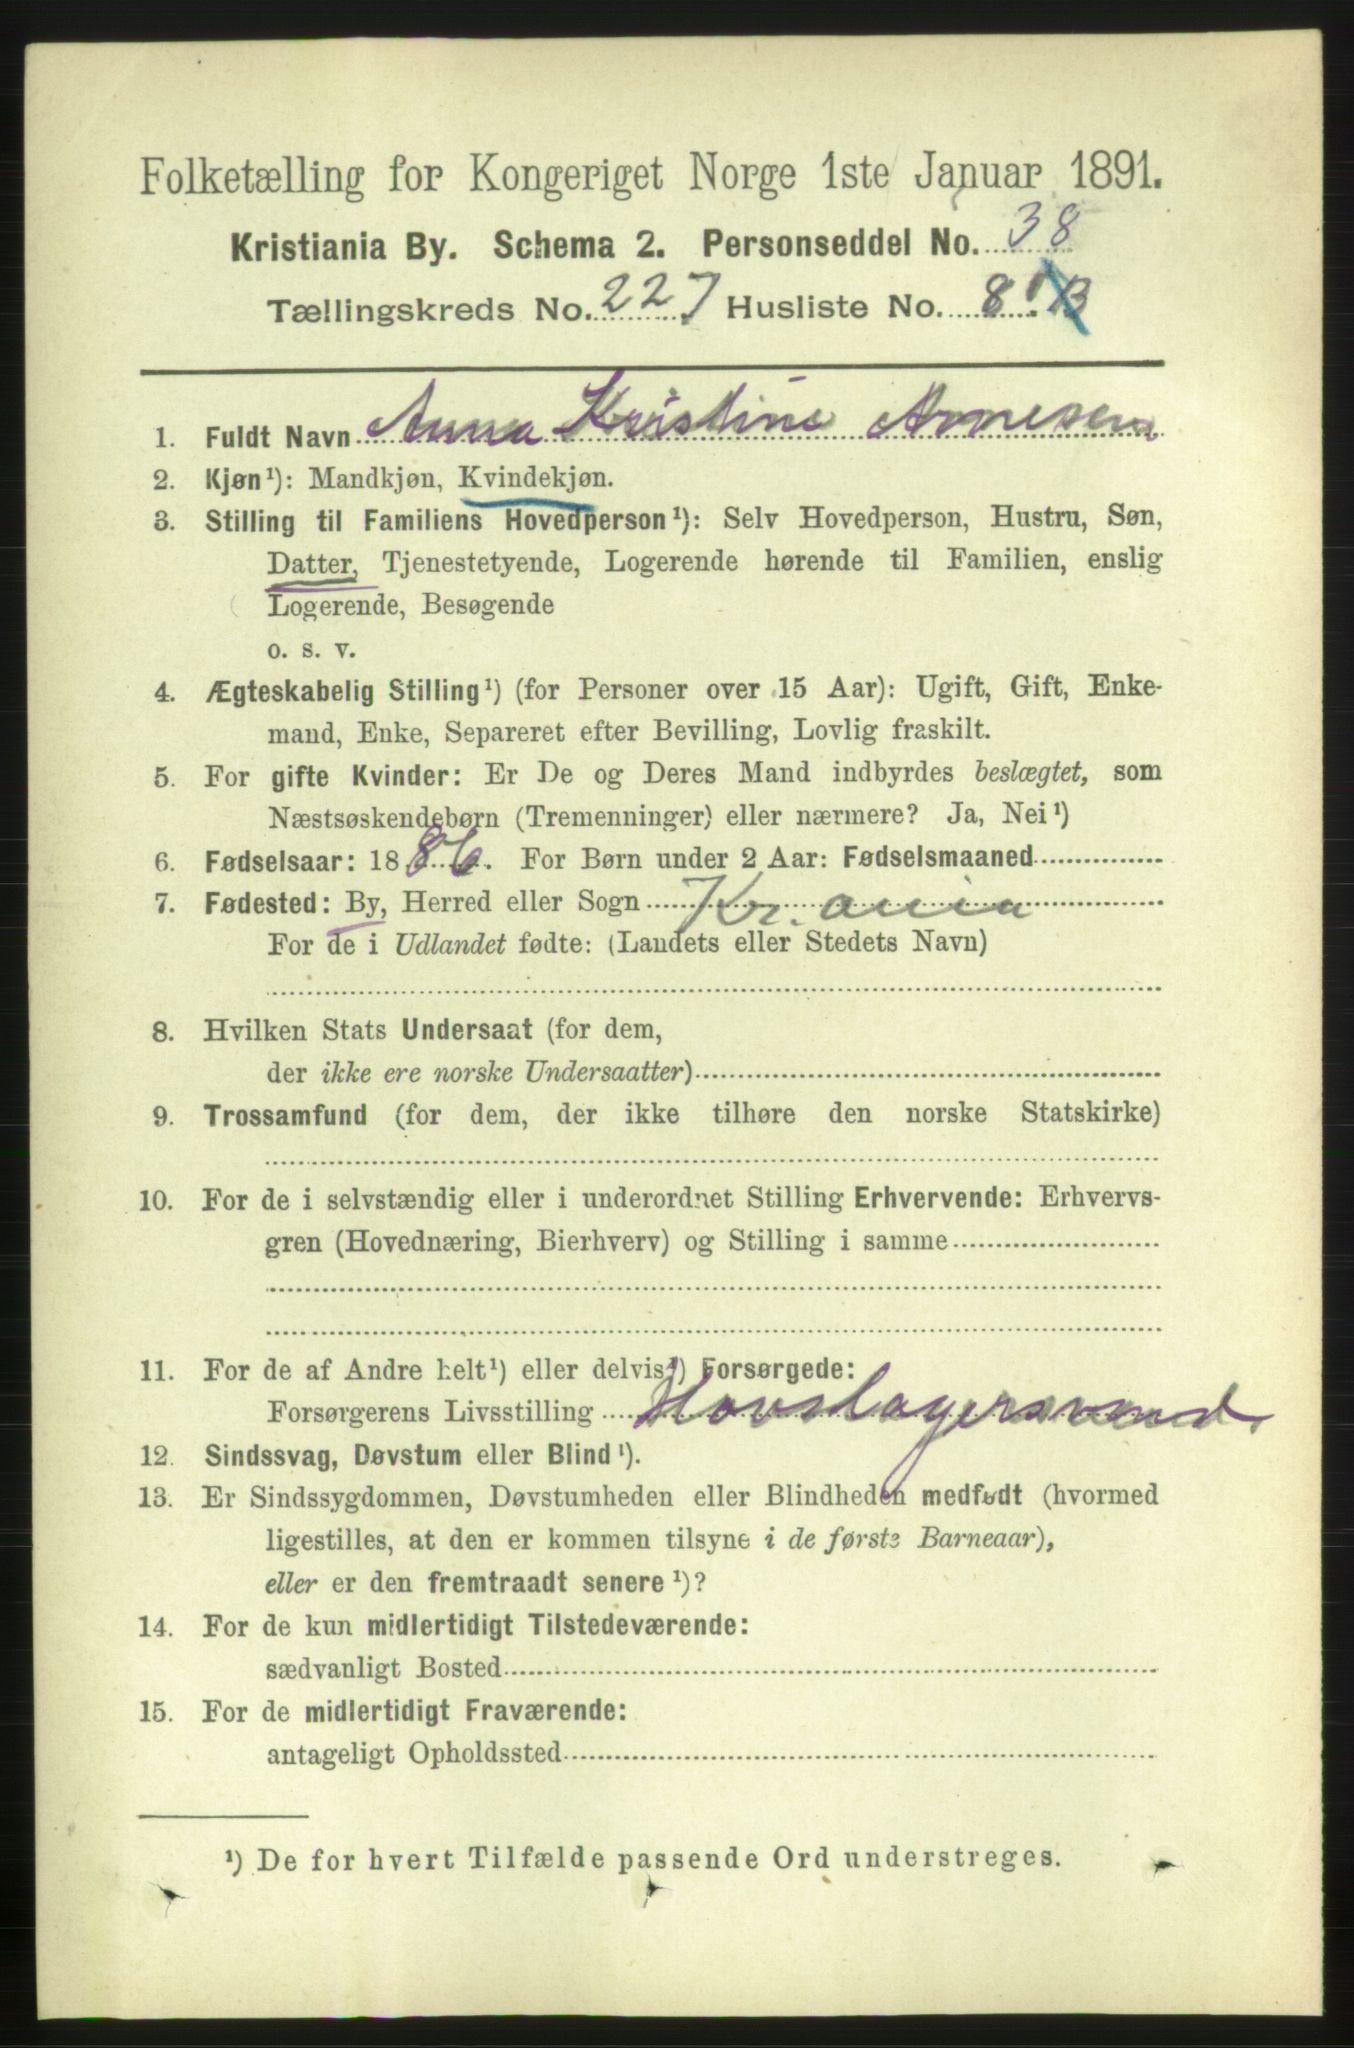 Folketælling for Kongeriget Norge 1ste Januar 1891.
Kristiania By. Schema 2. Personseddel No. 38
Tællingskreds No. 227 Husliste No. 8
1. Fuldt Navn Anna Kristine Arnesen
2. Kjøn¹): Mandkjøn, Kvindekjøn.
3. Stilling til Familiens Hovedperson¹): Selv Hovedperson, Hustru, Søn,
Datter, Tjenestetyende, Logerende hørende til Familien, enslig
Logerende, Besøgende
o. s. v.
4. Ægteskabelig Stilling¹) (for Personer over 15 Aar): Ugift, Gift, Enke-
mand, Enke, Separeret efter Bevilling, Lovlig fraskilt.
5. For gifte Kvinder: Er De og Deres Mand indbyrdes beslægtet, som
Næstsøskendebørn (Tremenninger) eller nærmere? Ja, Nei¹)
6. Fødselsaar: 1886. For Børn under 2 Aar: Fødselsmaaned
7. Fødested: By, Herred eller Sogn Kr.ania
For de i Udlandet fødte: (Landets eller Stedets Navn)
8. Hvilken Stats Undersaat (for dem,
der ikke ere norske Undersaatter)
9. Trossamfund (for dem, der ikke tilhøre den norske Statskirke)
10. For de i selvstændig eller i underordnet Stilling Erhvervende: Erhvervs-
gren (Hovednæring, Bierhverv) og Stilling i samme
11. For de af Andre helt¹) eller delvis¹) Forsørgede:
Forsørgerens Livsstilling Hovslagersvend.
12. Sindssvag, Døvstum eller Blind¹).
13. Er Sindssygdommen, Døvstumheden eller Blindheden medfødt (hvormed
ligestilles, at den er kommen tilsyne i de første Barneaar),
eller er den fremtraadt senere¹)?
14. For de kun midlertidigt Tilstedeværende:
sædvanligt Bosted
15. For de midlertidigt Fraværende:
antageligt Opholdssted
¹) De for hvert Tilfælde passende Ord understreges.